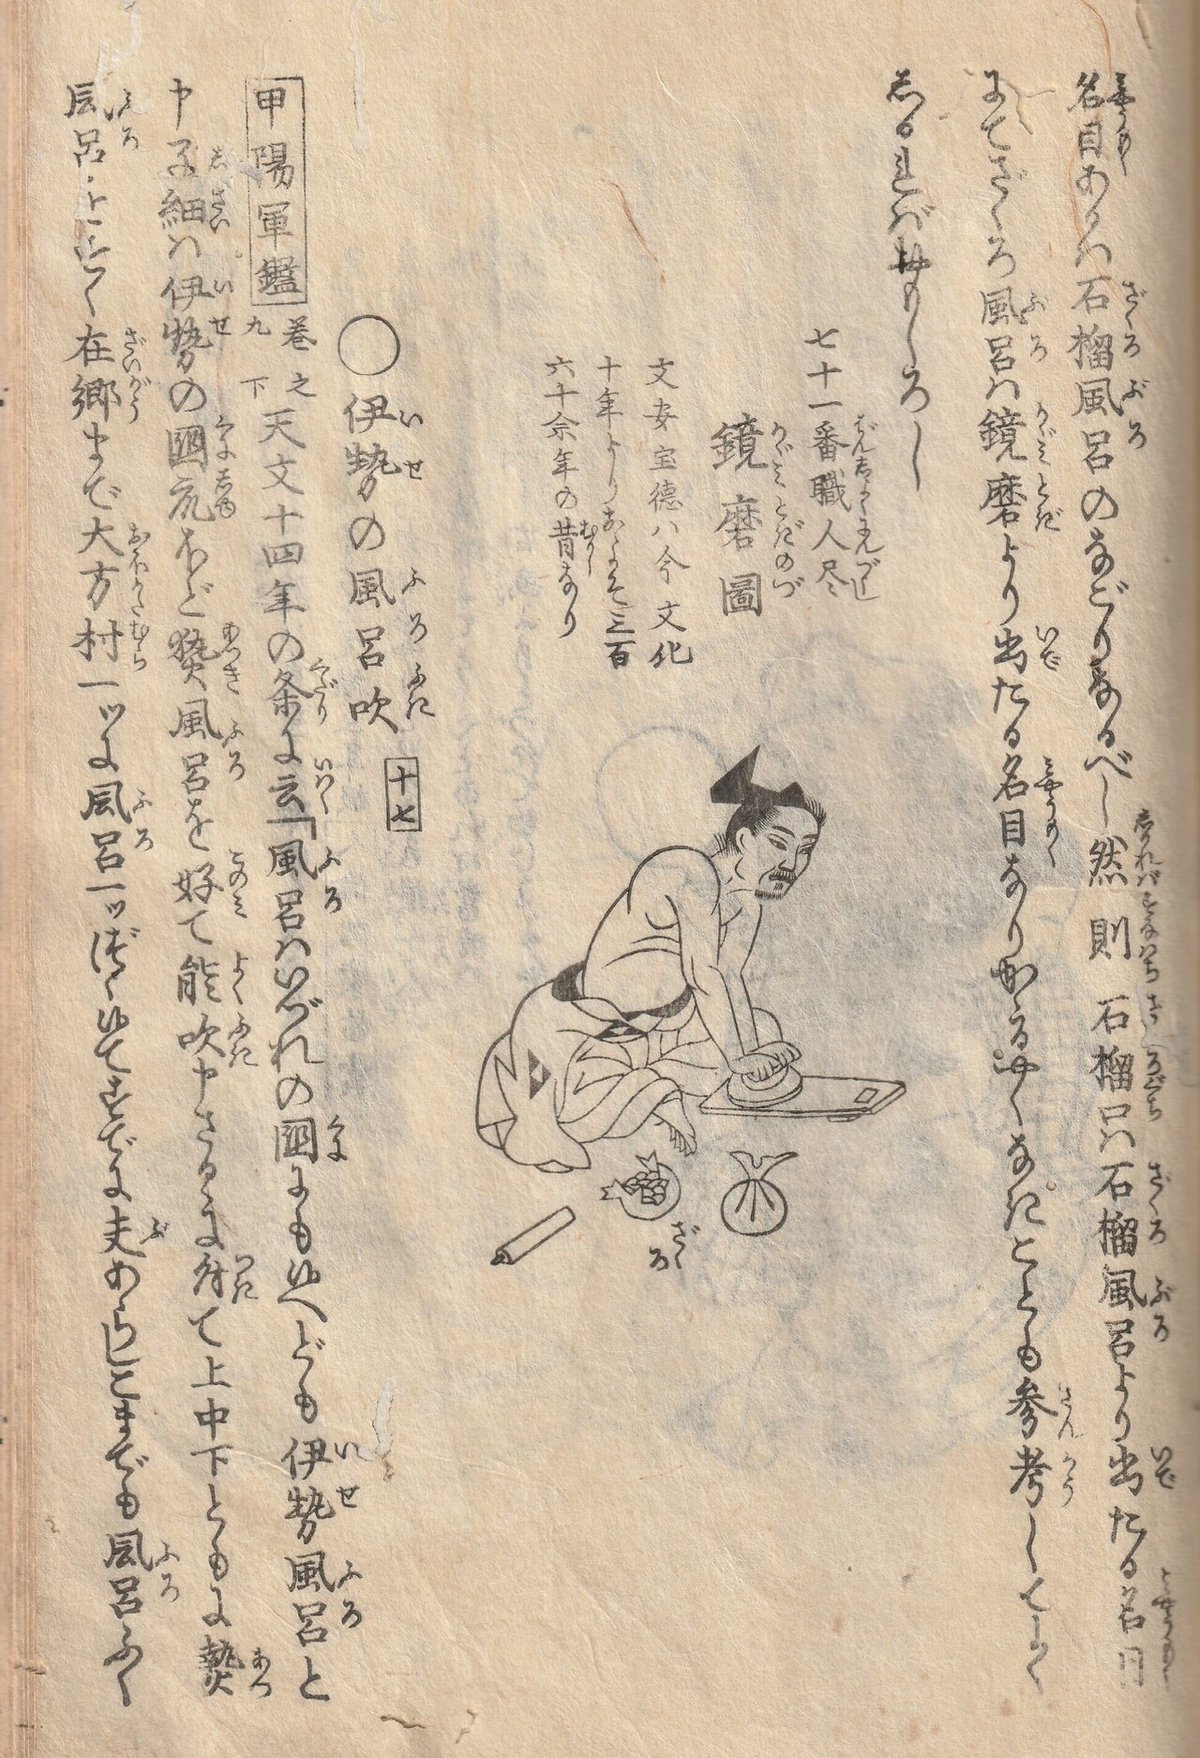 名目あるハ石榴風呂のなごりなるべし然則石榴口ハ石榴風呂より出たる名目
にてざくろ風呂ハ鏡磨より出たる名目なりかゝるやくなきことも参考してよく
しるれバおもしろし
七十一番職人尽
鏡磨圖
文安宝徳ハ今文化
十年よりおよそ三百
六十余年の昔なり
ざくろ
○伊勢の風呂吹 十七
甲陽軍鑑 巻之九下 天文十四年の条に云「風呂ハいづれの国にもゆへども伊勢風呂と
申子細ハ伊勢の国衆ほど熱風呂を好て能吹申さるに付て上中下ともに熱
風呂をすく在郷まで大方村一ツに風呂一ツづゝゆてすでに夫あらしこまでも風呂ふく